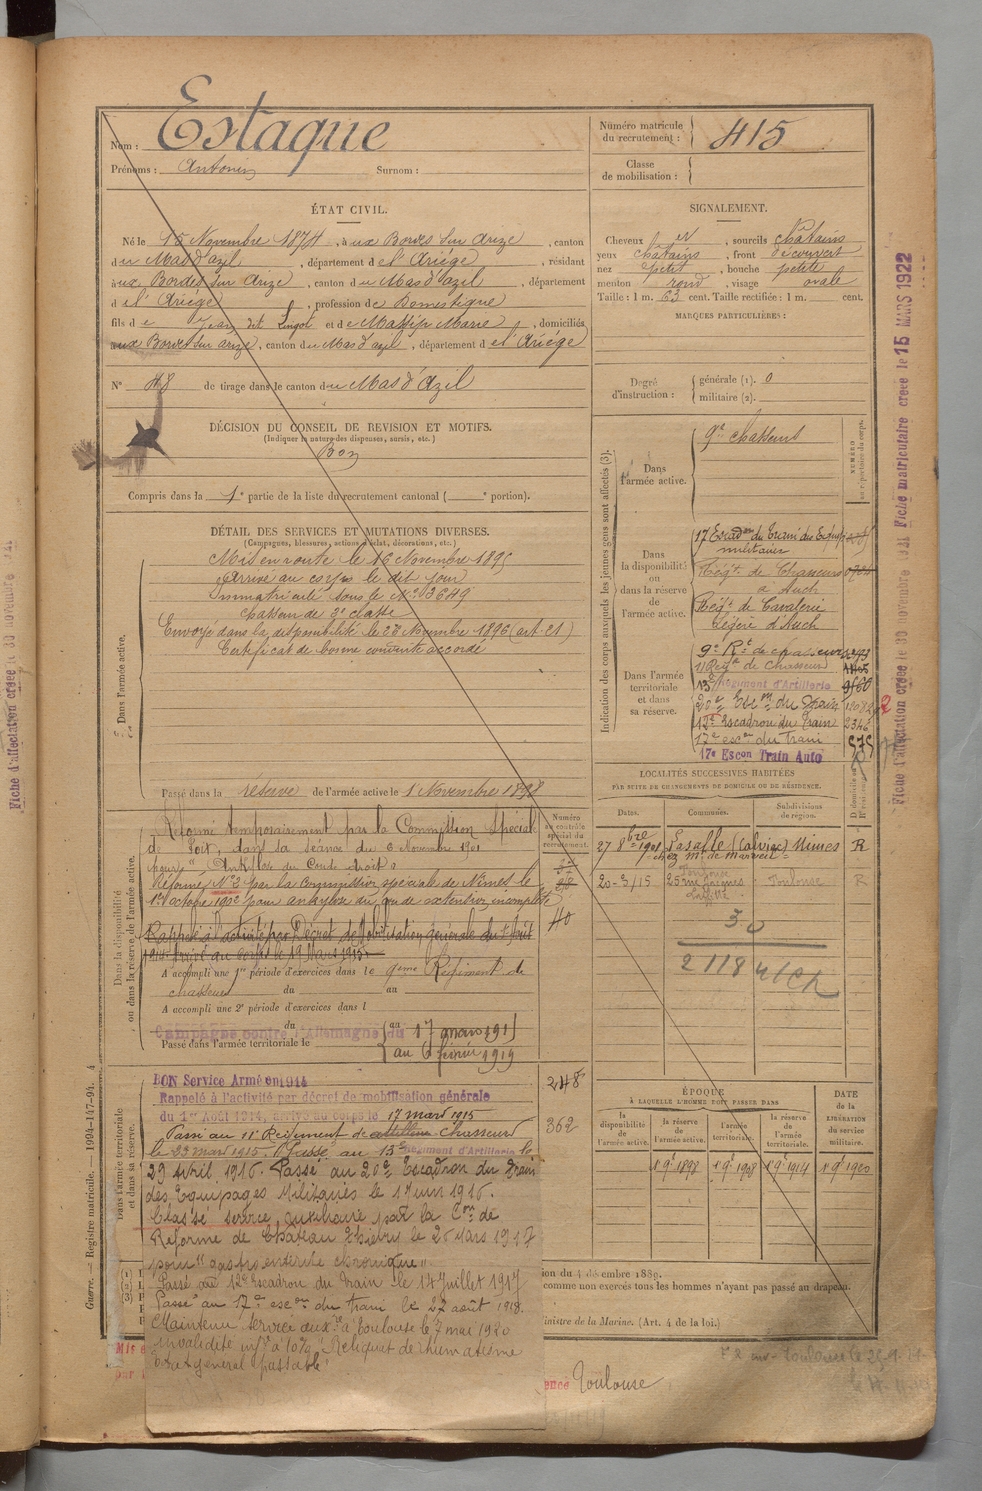 Nom : Estaque
Prénoms : Antonin Surnom :
Numéro matricule du recrutement : 415
Classe de mobilisation :
ÉTAT CIVIL.
Né le 15 Novembre 1874, à ux Bordes sur Arize, canton
du Mas d'azil, département de l'Ariège, résidant
aux Bordes sur Arize, canton du Mas d'azil, département
de l'Ariège, profession de Domestique
fils de Jean dit Lingot et de Massip Marie, domiciliés
aux Bordes sur arize, canton du Mas d'azil, département de l'Ariège
N° 48 de tirage dans le canton du Mas d'Azil
DÉCISION DU CONSEIL DE REVISION ET MOTIFS.
(Indiquer la nature des dispenses, sursis, etc.)
Bon
Compris dans la 1e partie de la liste du recrutement cantonal ( e portion).
DÉTAIL DES SERVICES ET MUTATIONS DIVERSES.
(Campagnes, blessures, actions d'éclat, décorations, etc.)
Dans l'armée active.
Mis en route le 16 Novembre 1895
Arrivé au corps le dit jour
Immatriculé sous le N° 3649
Chasseur de 2e classe
Envoyé dans la disponibilité le 28 Novembre 1896 (art. 21)
Certificat de bonne conduite accordé
Passé dans la réserve de l'armée active le 1 Novembre 1898
Dans la disponibilité ou dans la réserve de l'armée active.
Réformé temporairement par la Commission Spéciale
de Foix, dans sa séance du 6 Novembre 1901
pour " Ankylose du Coude droit "
Réformé N° 2 par la Commission spéciale de Nimes le
1er octobre 1902 pour ankylose du coude extension incomplète
Rappelé à l'activité par Décret de Mobilisation Générale du 1er Août
1914. Arrivé au corps le 19 Mars 1915.
A accompli une 1re période d'exercices dans le 9eme Régiment de
chasseurs du au
A accompli une 2e période d'exercices dans l
du au
Passé dans l'armée territoriale le
Campagne contre l'Allemagne du 17 mars 1915
au 6 février 1919
Numéro au contrôle spécial du recrutement.
40
248
362
Dans l'armée territoriale et dans sa réserve.
BON Service Armé en 1914
Rappelé à l'activité par décret de mobilisation générale
du 1er Août 1914, arrivé au corps le 17 mars 1915
Passé au 11e Régiment de Chasseurs
le 23 mars 1915. Passé au 13e Régiment d'Artillerie le
29 Avril 1916. Passé au 20e Escadron du Train
des Equipages Militaires le 1 Juin 1916.
Classé service auxiliaire par la Con de
Réforme de Chateau Thierry le 26 Mars 1917
pour "gastro entérite chronique"
Passé au 12e Escadron du Train le 14 Juillet 1917
Passé au 17e escon du train le 22 août 1918.
Maintenu service auxre à Toulouse le 7 mai 1920
invalidité infre à 10% Reliquat de rhumatisme
Etat général passable
SIGNALEMENT.
Cheveux , sourcils chatains
yeux chatains, front découvert
nez petit, bouche petite
menton rond, visage ovale
Taille : 1 m. 63 cent. Taille rectifiée : 1 m. cent.
MARQUES PARTICULIÈRES :
Degré d'instruction : générale (1). 0
militaire (2).
Indication des corps auxquels les jeunes gens sont affectés (3).
NUMÉRO au répertoire du corps.
Dans l'armée active.
9e chasseurs
Dans la disponibilité ou dans la réserve de l'armée active.
17 Escadon du Train des Equip
militaires
Régt. de Chasseurs
a Auch
Régt de Cavalerie
légère d'Auch
Dans l'armée territoriale et dans sa réserve.
9e Rt de chasseurs
11 Régt de Chasseurs
13e Régiment d'Artillerie 9560
20e Escon du Train
12e Escadron du Train 2346
17e escn du train 575
17e Escon Train Auto
LOCALITÉS SUCCESSIVES HABITÉES
PAR SUITE DE CHANGEMENTS DE DOMICILE OU DE RÉSIDENCE.
Dates. Communes. Subdivisions de région. D domicile ou R résidence.
27 8bre 1901 Lasalle (Calviac) Nimes R
chez Mr de Manoël
20-3/15 Toulouse 25 rue James Laffitte Toulouse R
30
2118
ÉPOQUE
À LAQUELLE L'HOMME DOIT PASSER DANS
la disponibilité de l'armée active. la réserve de l'armée active. l'armée territoriale. la réserve de l'armée territoriale. DATE de la LIBÉRATION du service militaire.
1 9e 1898 1 9e 1908 1 9e 1914 1 9e 1920
ion du 4 décembre 1889.
comme non exercés tous les hommes n'ayant pas passé au drapeau.
inistre de la Marine. (Art. 4 de la loi.)
Toulouse
Guerre. — Registre matricule. — 1994-147-94. 4
Fiche d'affectation créée le 30 novembre 1921
Fiche d'affectation créée le 30 novembre 1921 Fiche matriculaire créée le 15 MARS 1922